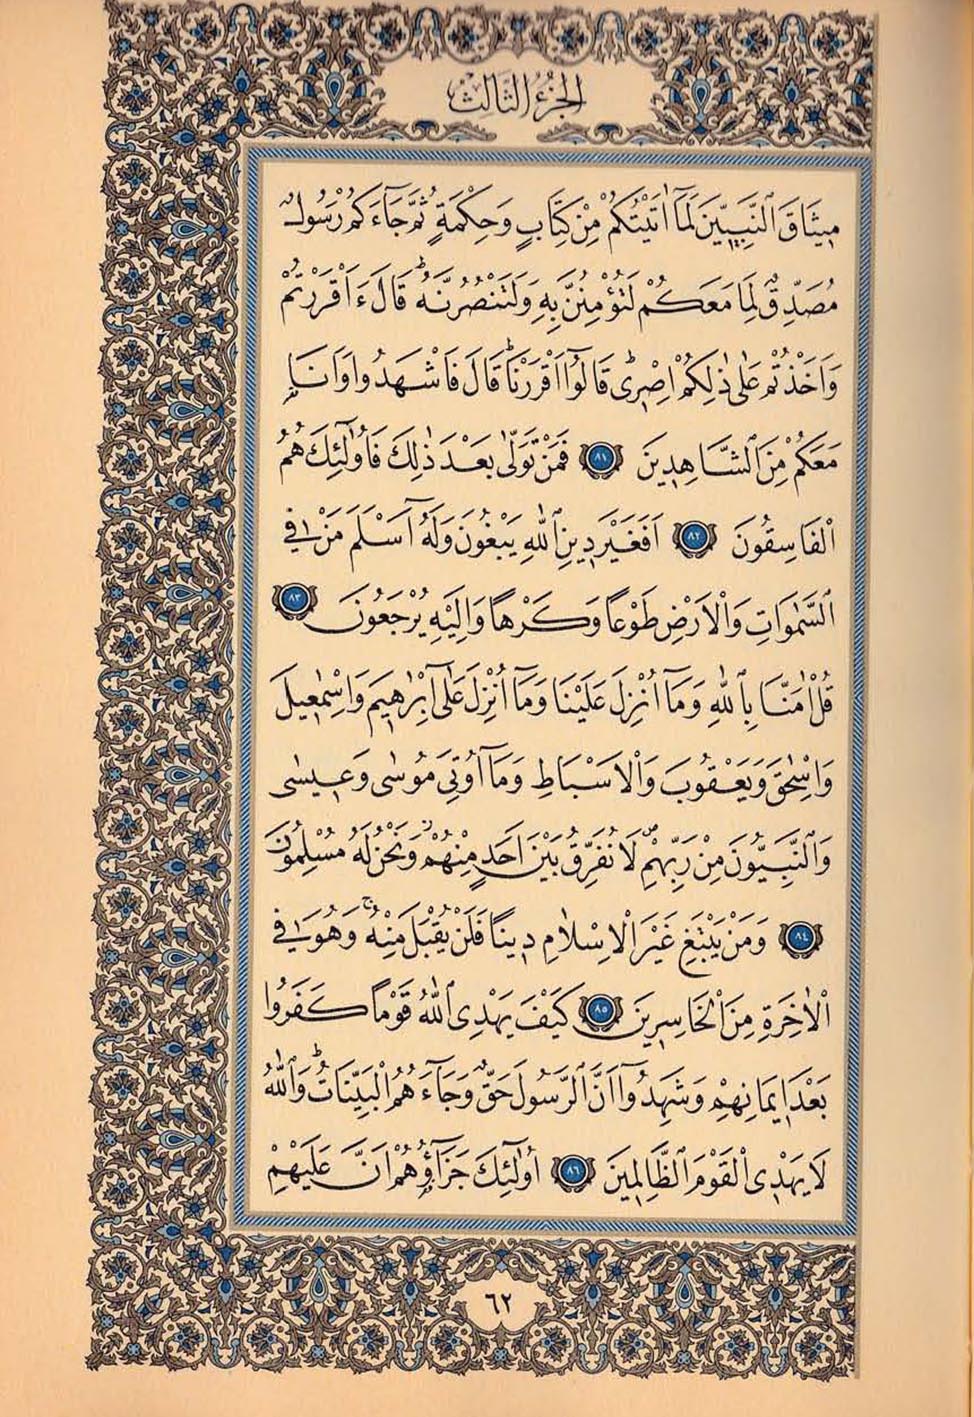 الجزء الثالث
مِيثَاقَ ٱلنَّبِيّينَ لَمَٓا اٰتَيْتُكُمْ مِنْ كِتَابٍ وَحِكْمَةٍ ثُمَّ جَٓاءَكُمْ رَسُولٌ
مُصَدِّقٌ لِمَا مَعَكُمْ لَتُؤْمِنُنَّ بِهِ وَلَتَنْصُرُنَّهُ قَالَ ءَاَقْرَرْتُمْ
وَاَخَذْتُمْ عَلٰى ذٰلِكُمْ اِصْرِى قَالُٓوا اَقْرَرْنَا قَالَ فَاشْهَدُوا وَاَنَا۬
مَعَكُمْ مِنَ ٱلشَّاهِدِينَ ٨١ فَمَنْ تَوَلّٰى بَعْدَ ذٰلِكَ فَاُو۬لٰٓئِكَ هُمُ
الْفَاسِقُونَ ٨٢ اَفَغَيْرَ دِينِ ٱللّٰهِ يَبْغُونَ وَلَهُٓ اَسْلَمَ مَنْ فِي
السَّمٰوَاتِ وَالْاَرْضِ طَوْعًا وَكَرْهًا وَاِلَيْهِ يُرْجَعُونَ ٨٣
قُلْ اٰمَنَّا بِٱللّٰهِ وَمَٓا اُنْزِلَ عَلَيْنَا وَمَٓا اُنْزِلَ عَلٰٓى اِبْرٰهِيمَ وَاِسْمٰعِيلَ
وَاِسْحٰقَ وَيَعْقُوبَ وَالْاَسْبَاطِ وَمَٓا اُو۫تِيَ مُوسٰى وَعِيسٰى
وَٱلنَّبِيُّونَ مِنْ رَبِّهِمْ لَا نُفَرِّقُ بَيْنَ اَحَدٍ مِنْهُمْ وَنَحْنُ لَهُ مُسْلِمُونَ
٨٤ وَمَنْ يَبْتَغِ غَيْرَ الْاِسْلَامِ دِينًا فَلَنْ يُقْبَلَ مِنْهُ وَهُوَ فِي
الْاٰخِرَةِ مِنَ الْخَاسِرِينَ ٨٥ كَيْفَ يَهْدِى ٱللّٰهُ قَوْمًا كَفَرُوا
بَعْدَ اِيمَانِهِمْ وَشَهِدُٓوا اَنَّ ٱلرَّسُولَ حَقٌّ وَجَٓاءَهُمُ الْبَيِّنَاتُ وَٱللّٰهُ
لَا يَهْدِى الْقَوْمَ ٱلظَّالِمِينَ ٨٦ اُو۬لٰٓئِكَ جَزَٓاؤُ۬هُمْ اَنَّ عَلَيْهِمْ
٦٢